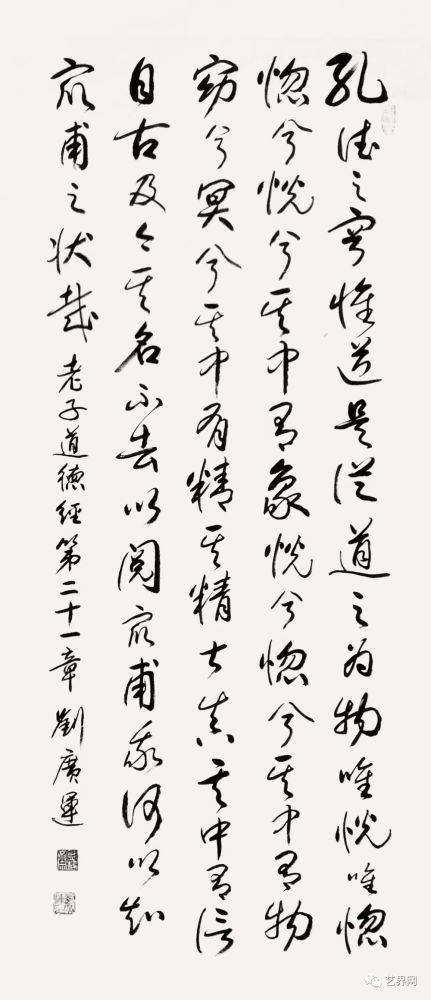 孔德之容惟道是從道之为物唯恍唯惚
惚兮恍兮其中有象恍兮惚兮其中有物
窈兮冥兮其中有精其精甚真其中有信
自古及今其名不去以閲衆甫我何以知
衆甫之状哉老子道德經第二十一章劉廣運
艺界网